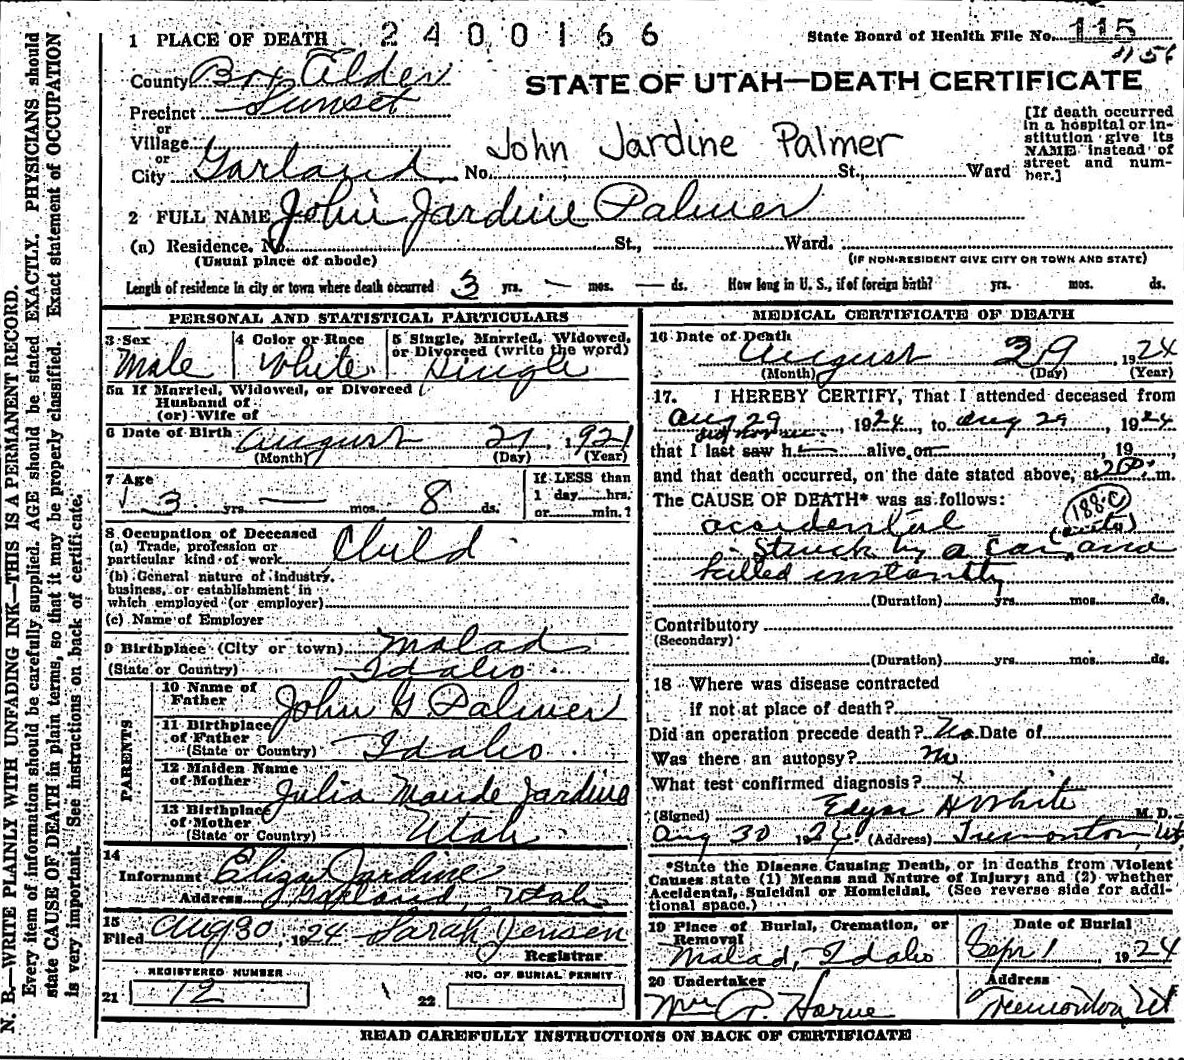 N. B.—WRITE PLAINLY WITH UNFADING INK—THIS IS A PERMANENT RECORD.
Every item of information should be carefully supplied. AGE should be stated EXACTLY. PHYSICIANS should
state CAUSE OF DEATH in plain terms, so that it may be properly classified. Exact statement of OCCUPATION
is very important. See instructions on back of certificate.
1 PLACE OF DEATH 2400166 State Board of Health File No. 115
1156
County Box Elder
STATE OF UTAH—DEATH CERTIFICATE
Precinct Sunset
or
Village
or
City Garland No. St., Ward
John Jardine Palmer
[If death occurred
in a hospital or in-
stitution give its
NAME instead of
street and num-
ber.]
2 FULL NAME John Jardine Palmer
(a) Residence. No. St., Ward.
(Usual place of abode) (IF NON-RESIDENT GIVE CITY OR TOWN AND STATE)
Length of residence in city or town where death occurred 3 yrs. — mos. — ds. How long in U. S., if of foreign birth? yrs. mos. ds.
PERSONAL AND STATISTICAL PARTICULARS
3 Sex
Male
4 Color or Race
White
5 Single, Married, Widowed,
or Divorced (write the word)
Single
5a If Married, Widowed, or Divorced
Husband of
(or) Wife of
6 Date of Birth August 21, 1921
(Month) (Day) (Year)
7 Age
3 yrs. — mos. 8 ds.
If LESS than
1 day hrs.
or min.?
8 Occupation of Deceased
(a) Trade, profession or
particular kind of work Child
(b) General nature of industry,
business, or establishment in
which employed (or employer)
(c) Name of Employer
9 Birthplace (City or town) Malad
(State or Country) Idaho
PARENTS
10 Name of
Father John G Palmer
11 Birthplace
of Father
(State or Country) Idaho
12 Maiden Name
of Mother Julia Maude Jardine
13 Birthplace
of Mother
(State or Country) Utah
14
Informant Eliza Jardine
Address Garland, Utah
15
Filed Aug 30, 1924 Sarah Jensen
Registrar
REGISTERED NUMBER NO. OF BURIAL PERMIT
21 12 22
MEDICAL CERTIFICATE OF DEATH
16 Date of Death
August 29 1924
(Month) (Day) (Year)
17. I HEREBY CERTIFY, That I attended deceased from
Aug 29, 1924, to Aug 29, 1924
did not see
that I last saw h alive on , 19
and that death occurred, on the date stated above, at m.
The CAUSE OF DEATH* was as follows:
188-c
accidental (auto)
Struck by a car, and
killed instantly
(Duration) yrs. mos. ds.
Contributory
(Secondary)
(Duration) yrs. mos. ds.
18 Where was disease contracted
if not at place of death?
Did an operation precede death? No Date of
Was there an autopsy? No
What test confirmed diagnosis? x
(Signed) Edgar H White M. D.
Aug 30 1924 (Address) Tremonton, Ut
*State the Disease Causing Death, or in deaths from Violent
Causes state (1) Means and Nature of Injury; and (2) whether
Accidental, Suicidal or Homicidal. (See reverse side for addi-
tional space.)
19 Place of Burial, Cremation, or
Removal
Malad, Idaho
Date of Burial
Sept 1 1924
20 Undertaker
Address
Tremonton, Ut
READ CAREFULLY INSTRUCTIONS ON BACK OF CERTIFICATE